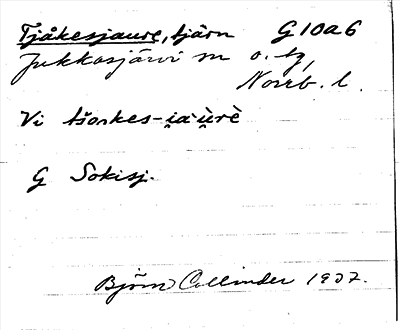 Tjåkesjaure, tjärn G10a6
Jukkasjärvi sn o. tg,
Norrb. l.
Vi tšoskes-i̯a·ù̯rè
G Sokisj.
Björn Collinder 1937.